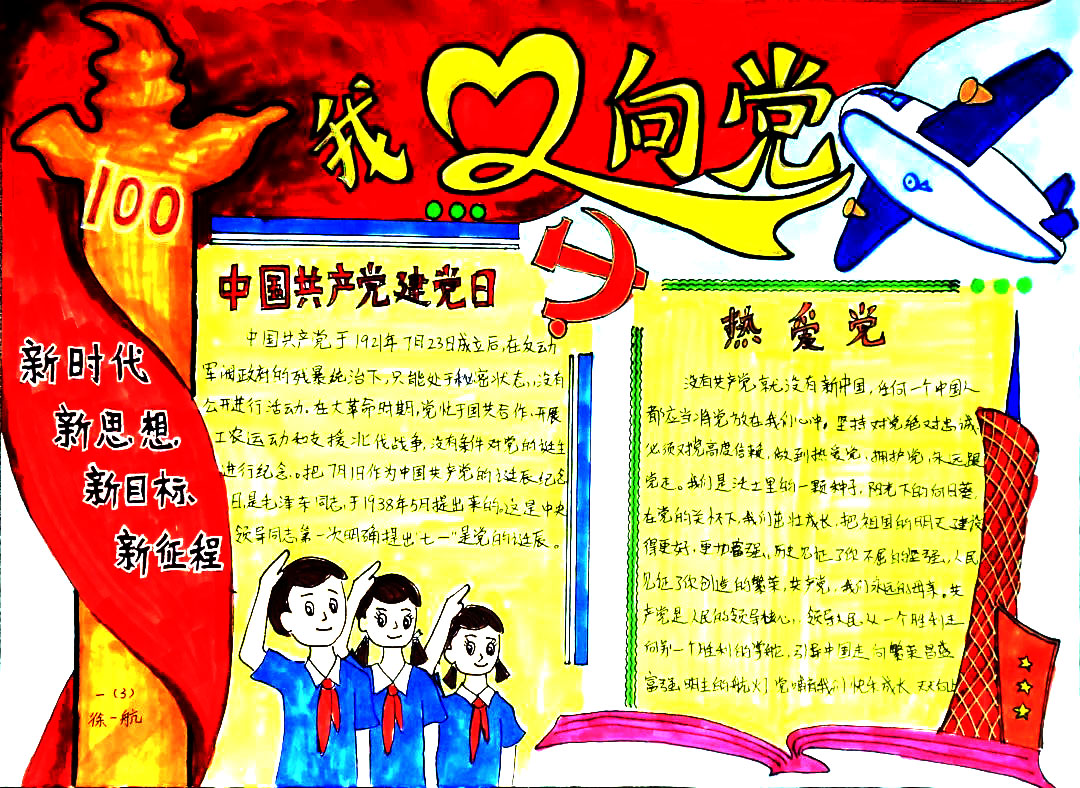 我心向党
100
中国共产党建党日
中国共产党于1921年7月23日成立后,在反动
军阀政府的残暴统治下,只能处于秘密状态,没有
公开进行活动。在大革命时期,党忙于国共合作、开展
工农运动和支援北伐战争,没有条件对党的诞生
进行纪念。把7月1日作为中国共产党的诞辰纪念
日,是毛泽东同志,于1938年5月提出来的。这是中央
领导同志第一次明确提出"七一"是党的诞辰。
新时代
新思想、
新目标、
新征程
一(3)
徐一航
热爱党
没有共产党,就没有新中国,任何一个中国人
都应当将党放在我们心中。坚持对党绝对忠诚,
必须对党高度信赖,做到热爱党,拥护党,永远跟
党走。我们是沃土里的一颗种子,阳光下的向日葵,
在党的关怀下,我们茁壮成长,把祖国的明天建设
得更好,更加富强。历史见证了你不屈的坚强,人民
见证了你创造的繁荣,共产党,我们永远的母亲。共
产党是人民的领导核心,领导人民从一个胜利走
向另一个胜利的掌舵,引导中国走向繁荣昌盛
富强明主的航火丁党哺育我们快乐成长 天天向上